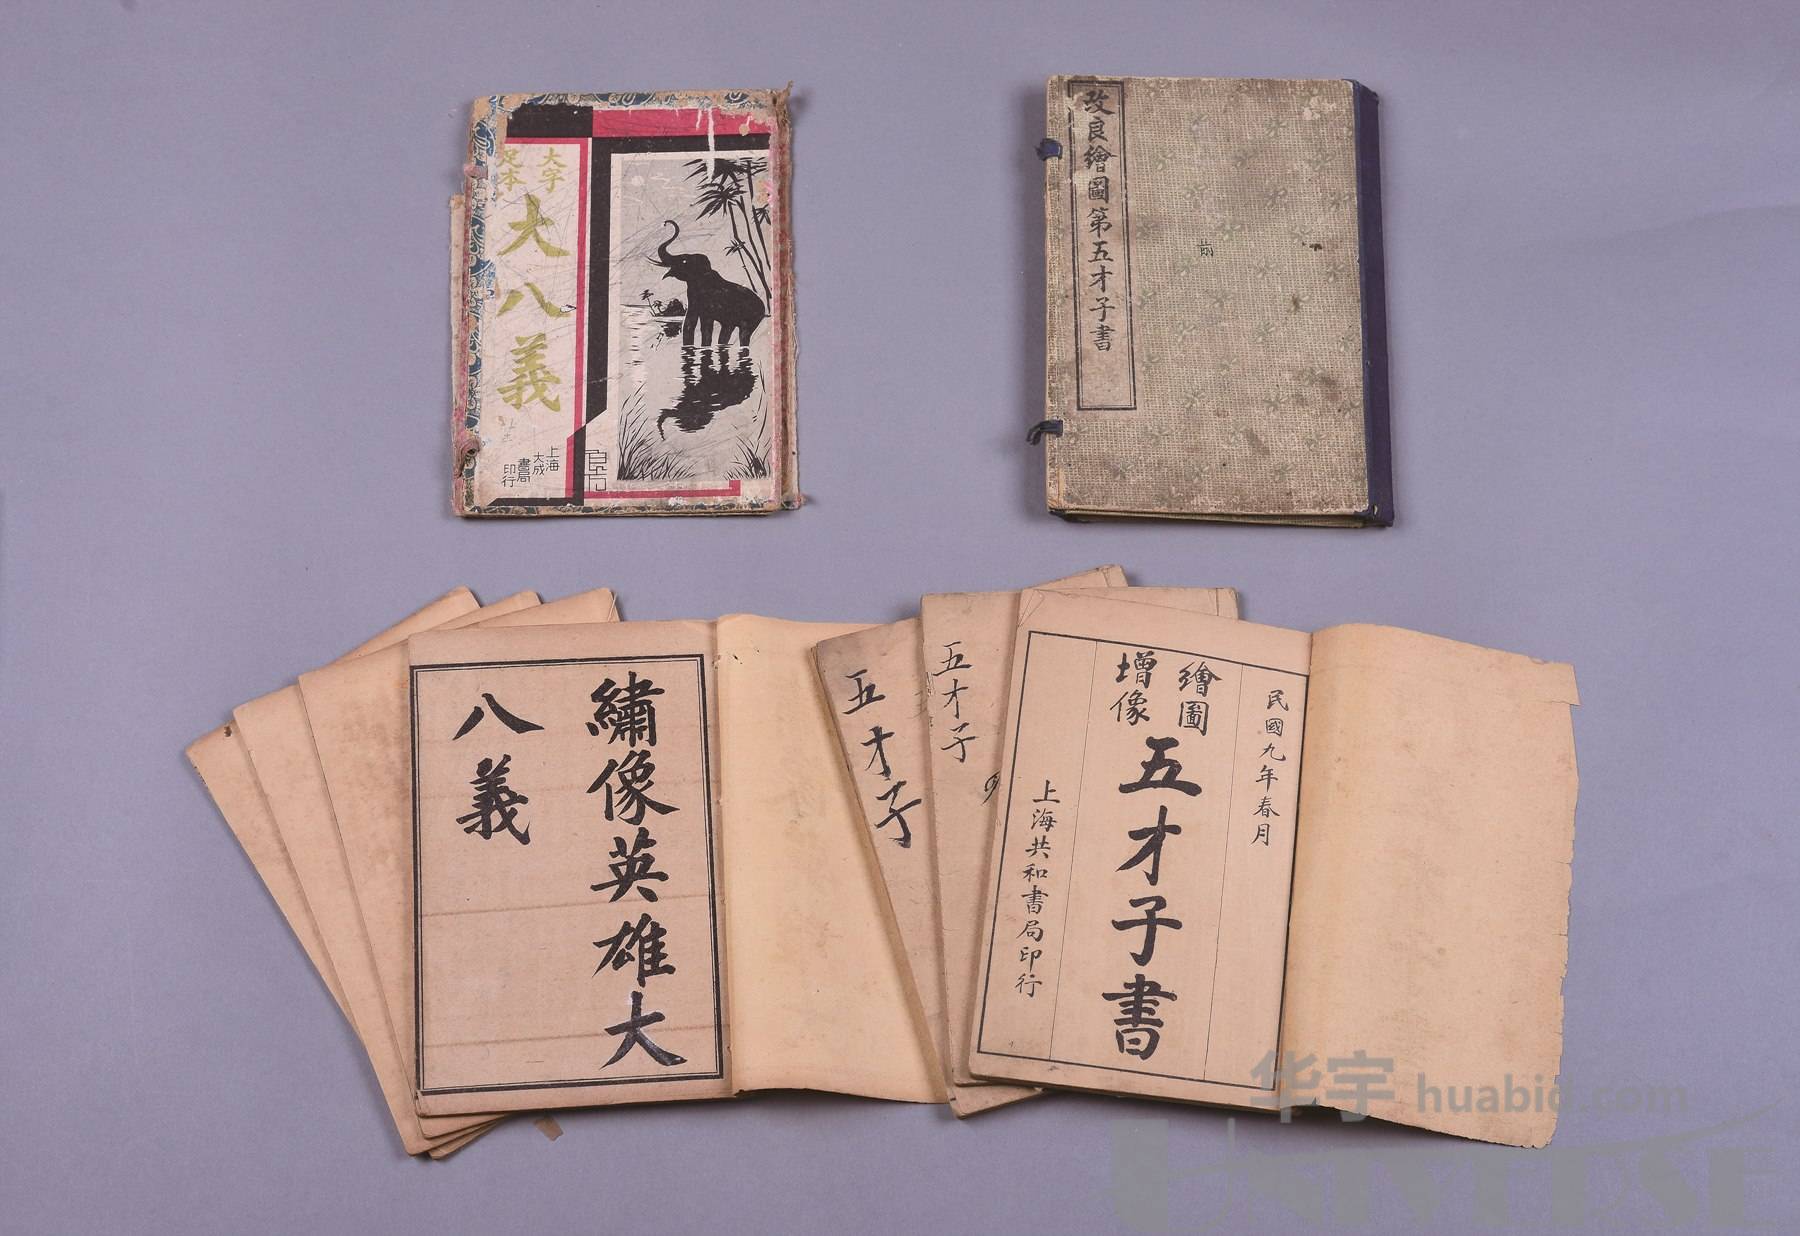 大字
足本
大八義
上海
大成
書局
印行
改良繪圖第五才子書
前
繡像英雄大
八義
五才子
五才子
民國九年春月
繪圖
增像
五才子書
上海共和書局印行
华宇 huabid.com
UNIVERSE